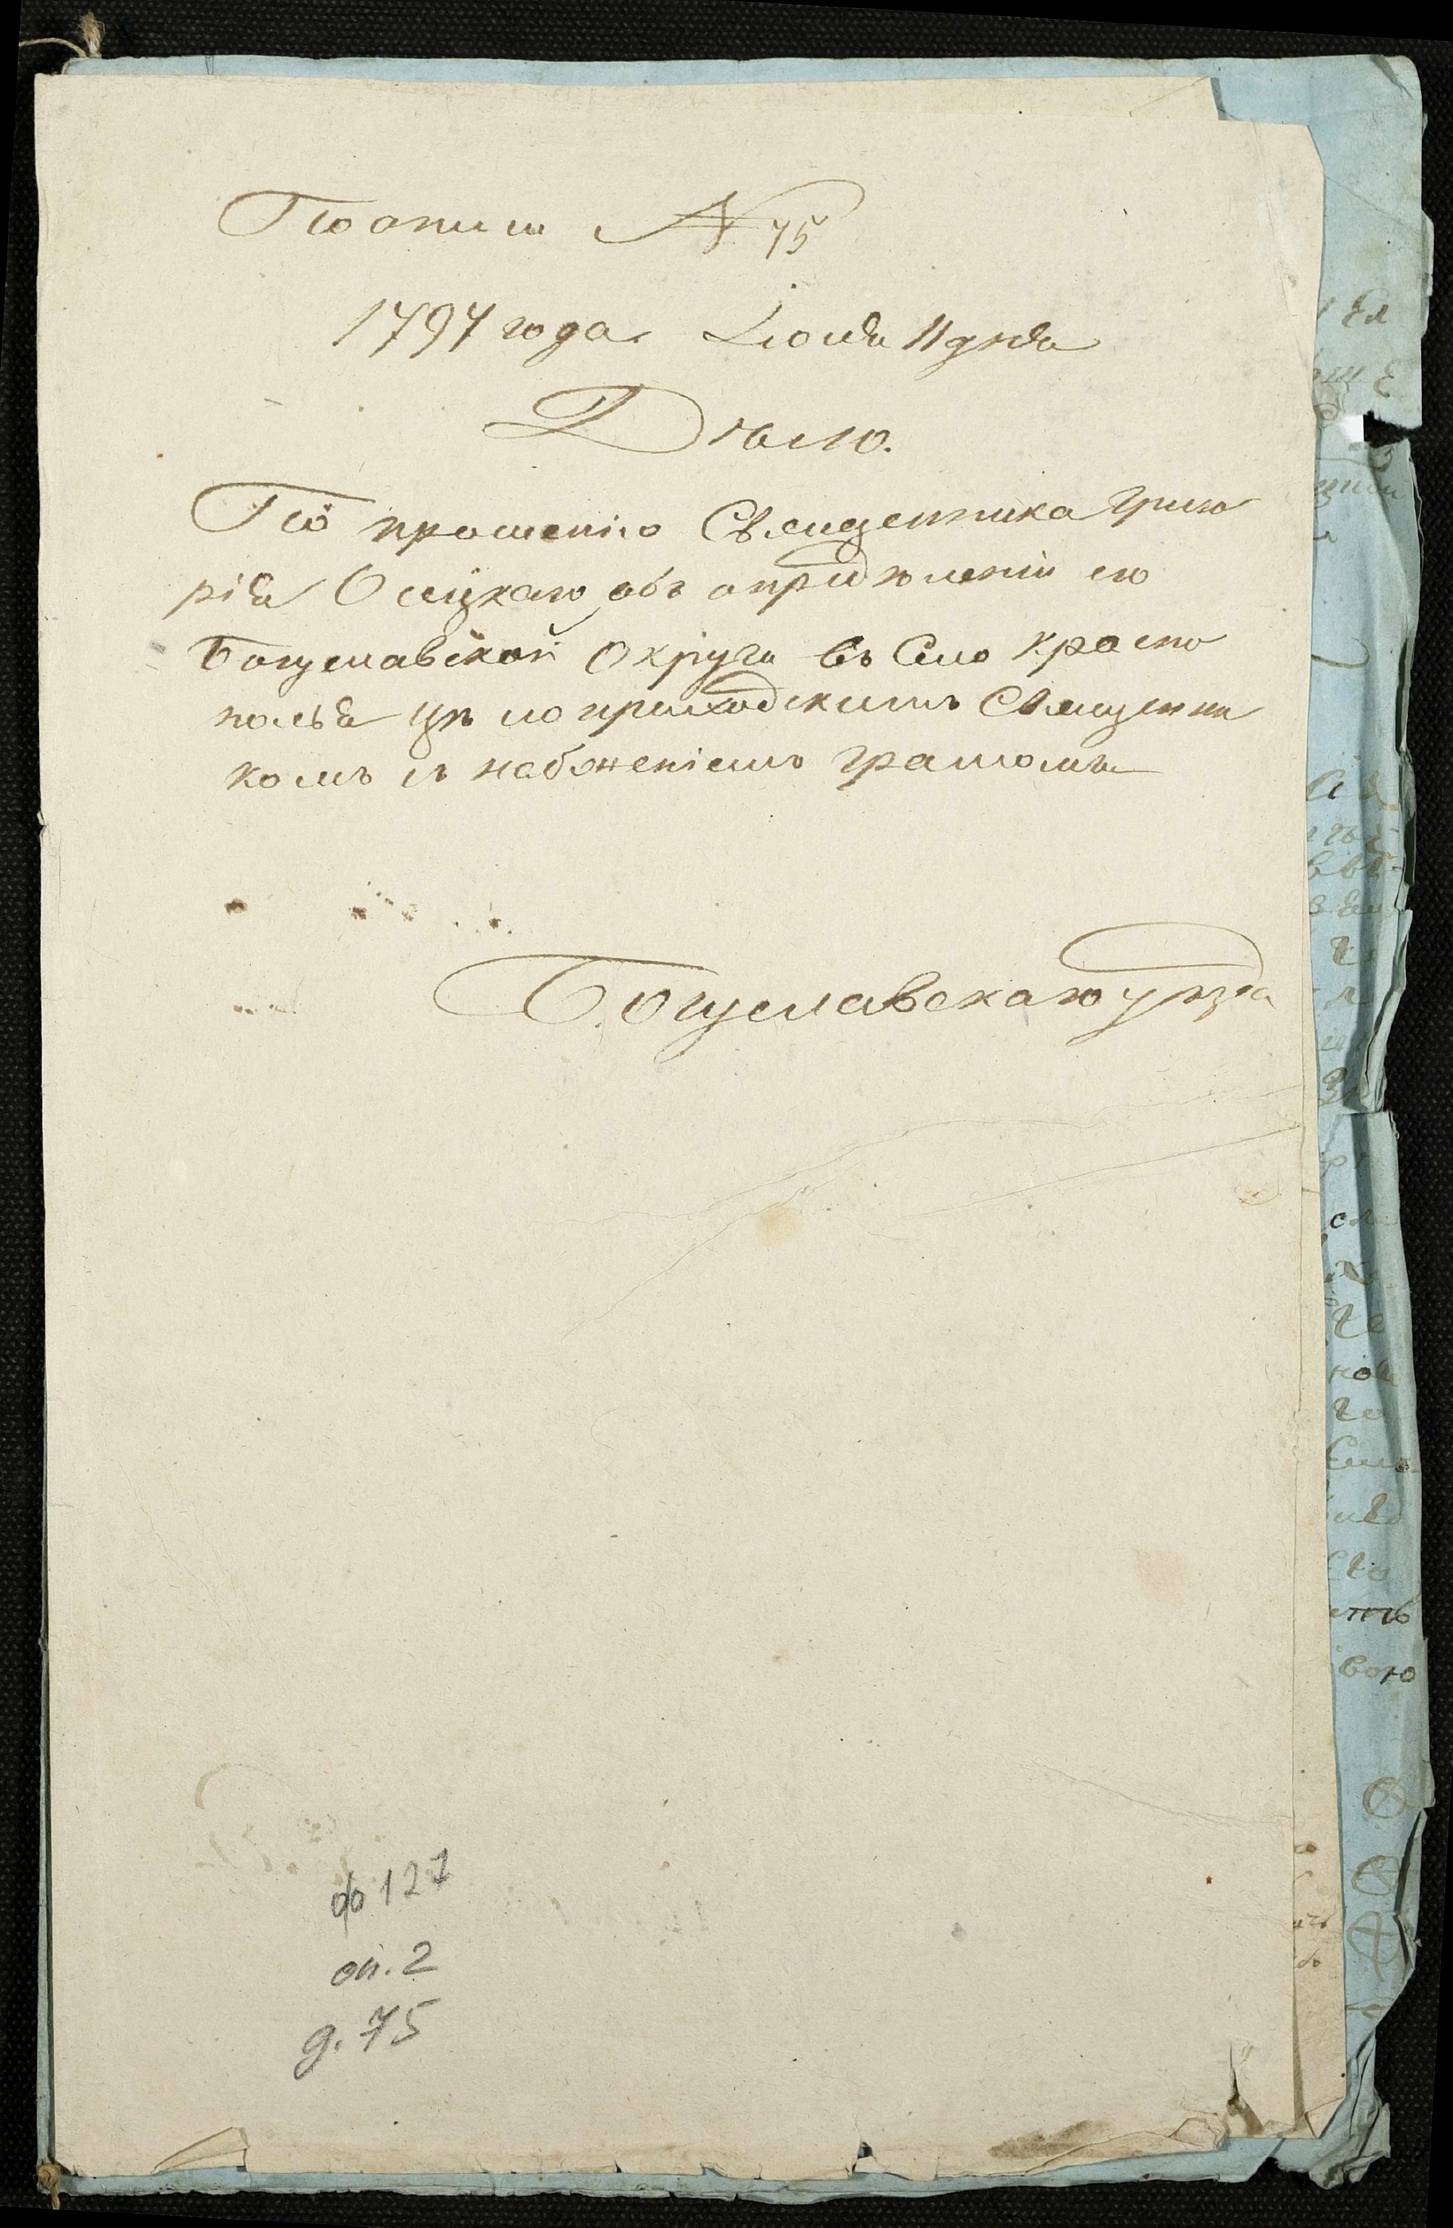 По описи № 75
1797 года Июля 11 дня
Дѣло.
По прошенію Священника Григо
рія Осецкаго объ опредѣленіи его
Богуславской Округи въ Село Красно
полье приходскимъ Священни
комъ и снабженіемъ грамотъ
Богуславскаго уѣзда
ф 127
оп. 2
д. 75